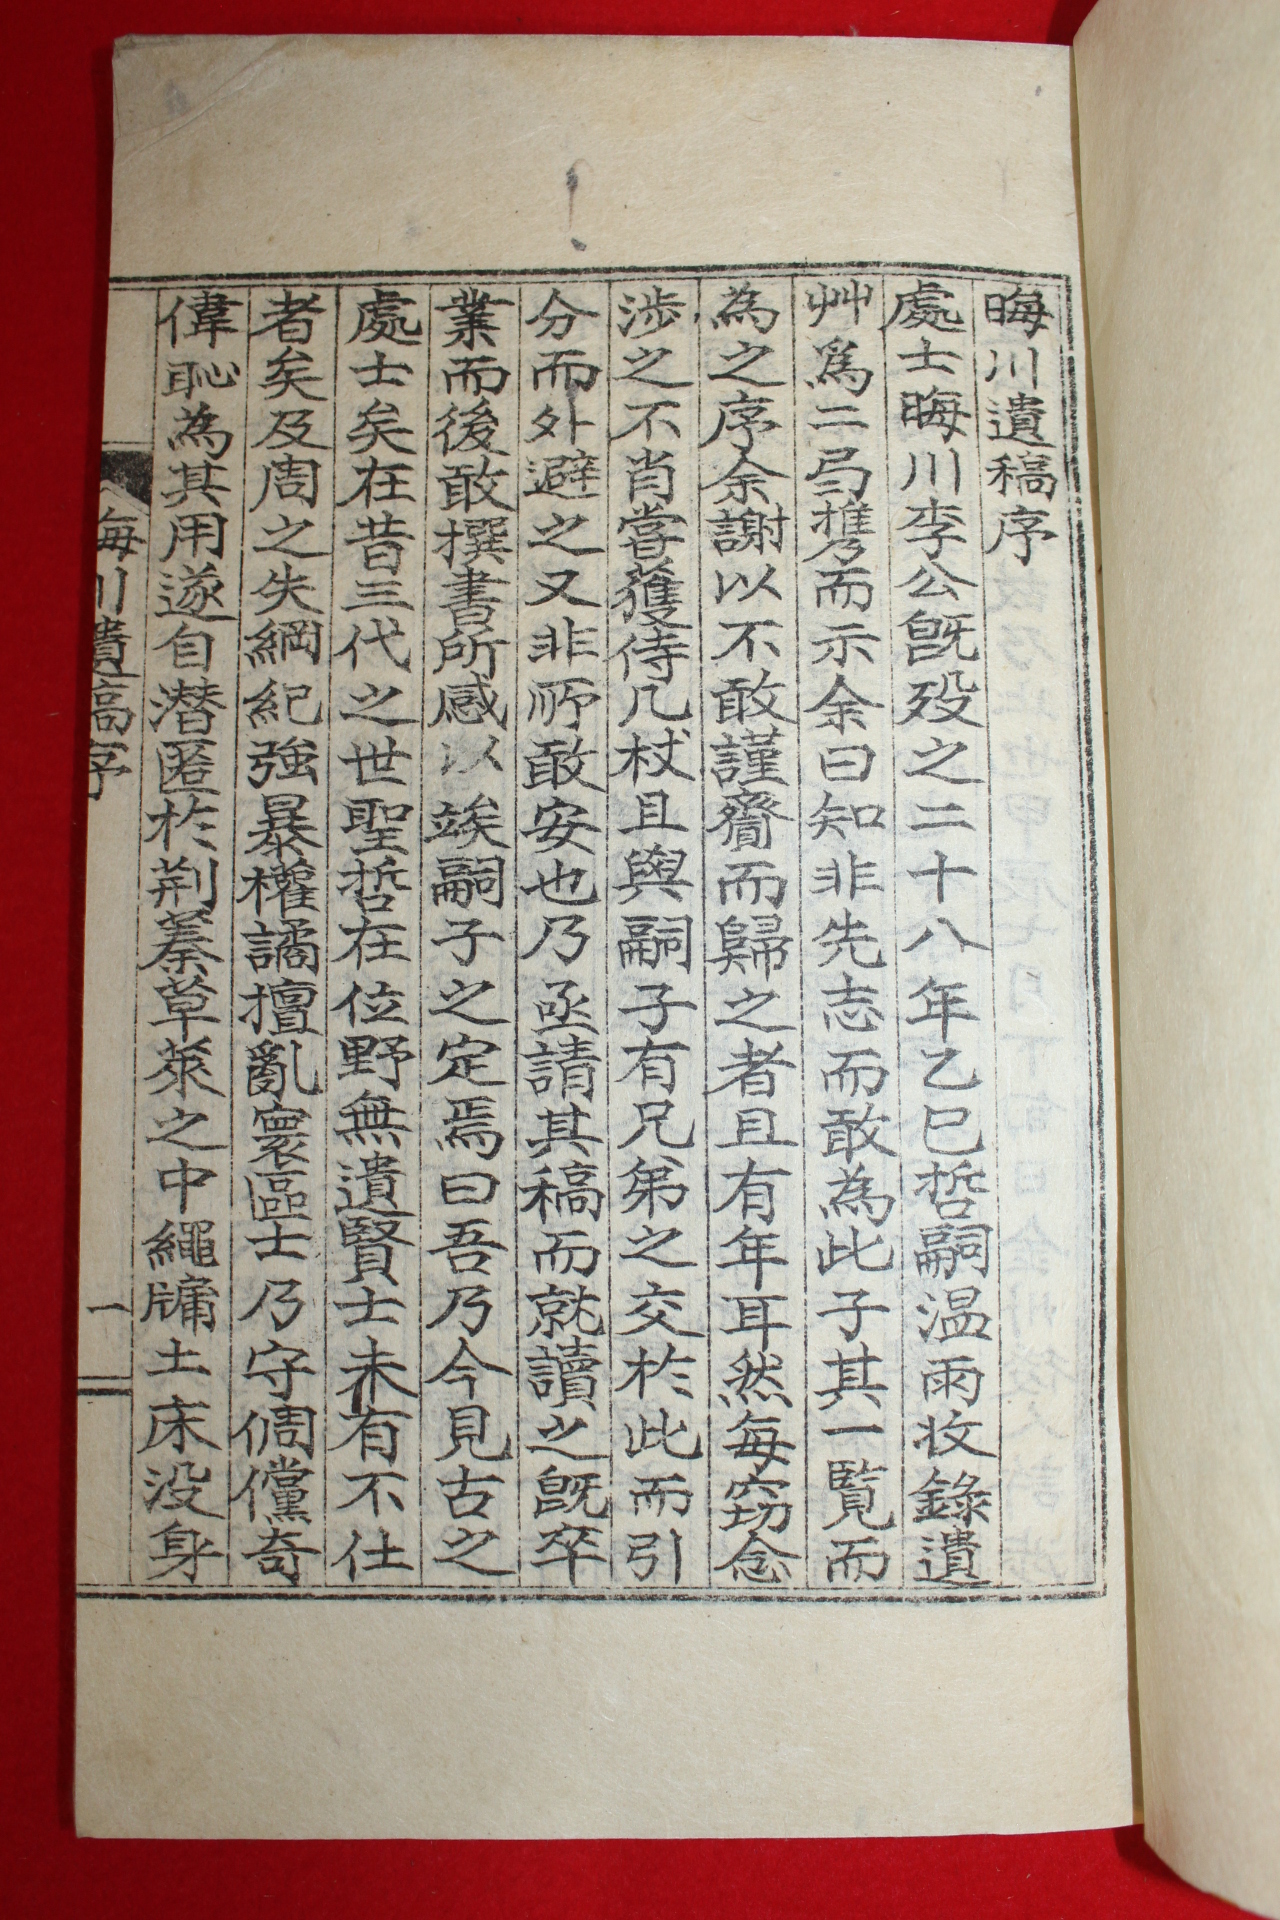 晦川遺稿序
處士晦川李公旣歿之二十八年乙巳哲嗣温雨收錄遺
艸爲二弓携而示余曰知非先志而敢為此子其一覧而
為之序余謝以不敢謹齎而歸之者且有年耳然每竊念
渉之不肖嘗獲侍几杖且與嗣子有兄弟之交於此而引
分而外避之又非所敢安也乃亟請其稿而就讀之旣卒
業而後敢撰書所感以竢嗣子之定焉曰吾乃今見古之
處士矣在昔三代之世聖哲在位野無遺賢士未有不仕
者矣及周之失綱紀強暴權譎擅亂寰區士乃守倜儻奇
偉恥為其用遂自潜匿於荆蓁草萊之中繩牖土床没身
晦川遺稿序 一